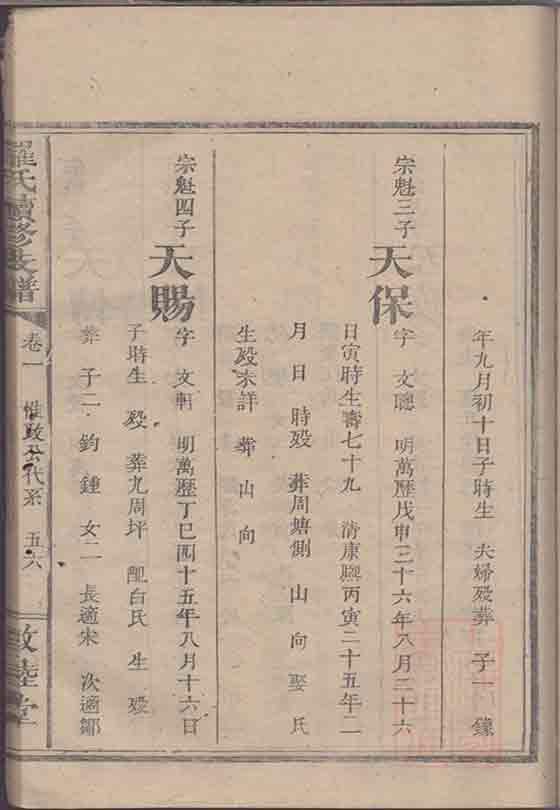 年九月初十日子時生 夫婦殁葬 子一 鐘
宗魁三子
天保
字 文聰 明萬歷戊申三十六年八月二十六
日寅時生壽七十九 清康熙丙寅二十五年二
月 日 時殁 葬周塘側 山 向娶 氏
生殁未詳 葬 山 向
宗魁四子
天賜
字 文軒 明萬歷丁巳四十五年八月十六日
子時生 殁 葬九周坪 配白氏 生 殁
葬 子二 鈞 鍾 女二 長適宋 次適鄒
羅氏續修支譜
卷一 惟政公代系 五六
敦睦堂